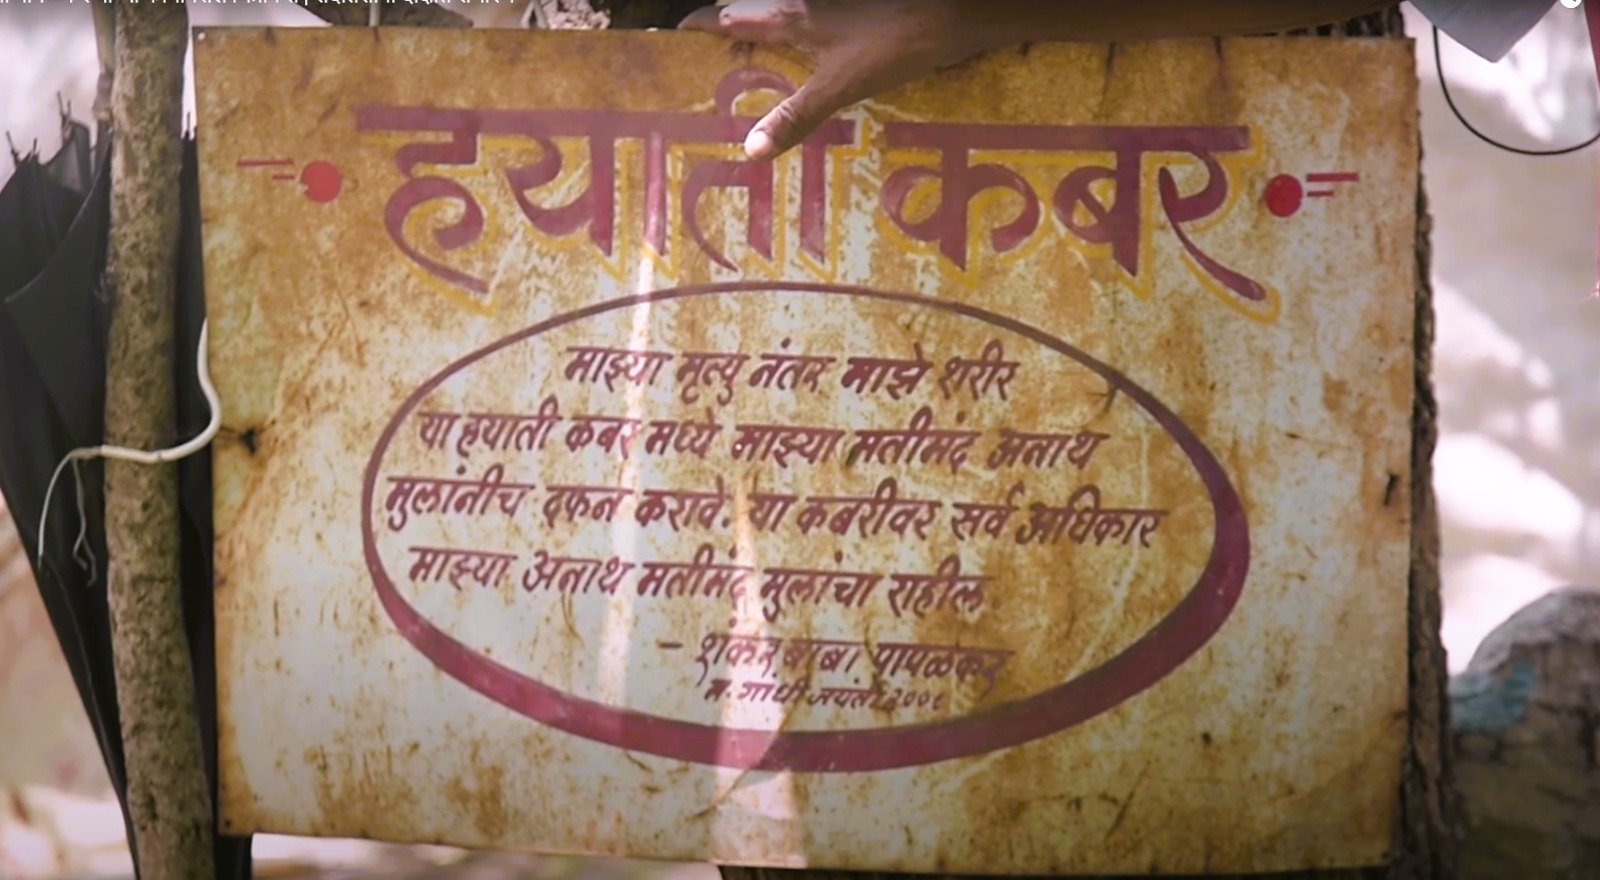 हयाती कबर
माझ्या मृत्यु नंतर माझे शरीर
या हयाती कबर मध्ये माझ्या मतीमंद अनाथ
मुलांनीच दफन करावे. या कबरीवर सर्व अधिकार
माझ्या अनाथ मतीमंद मुलांचा राहील
- शंकर बाबा पापळकर
म. गांधी जयंती